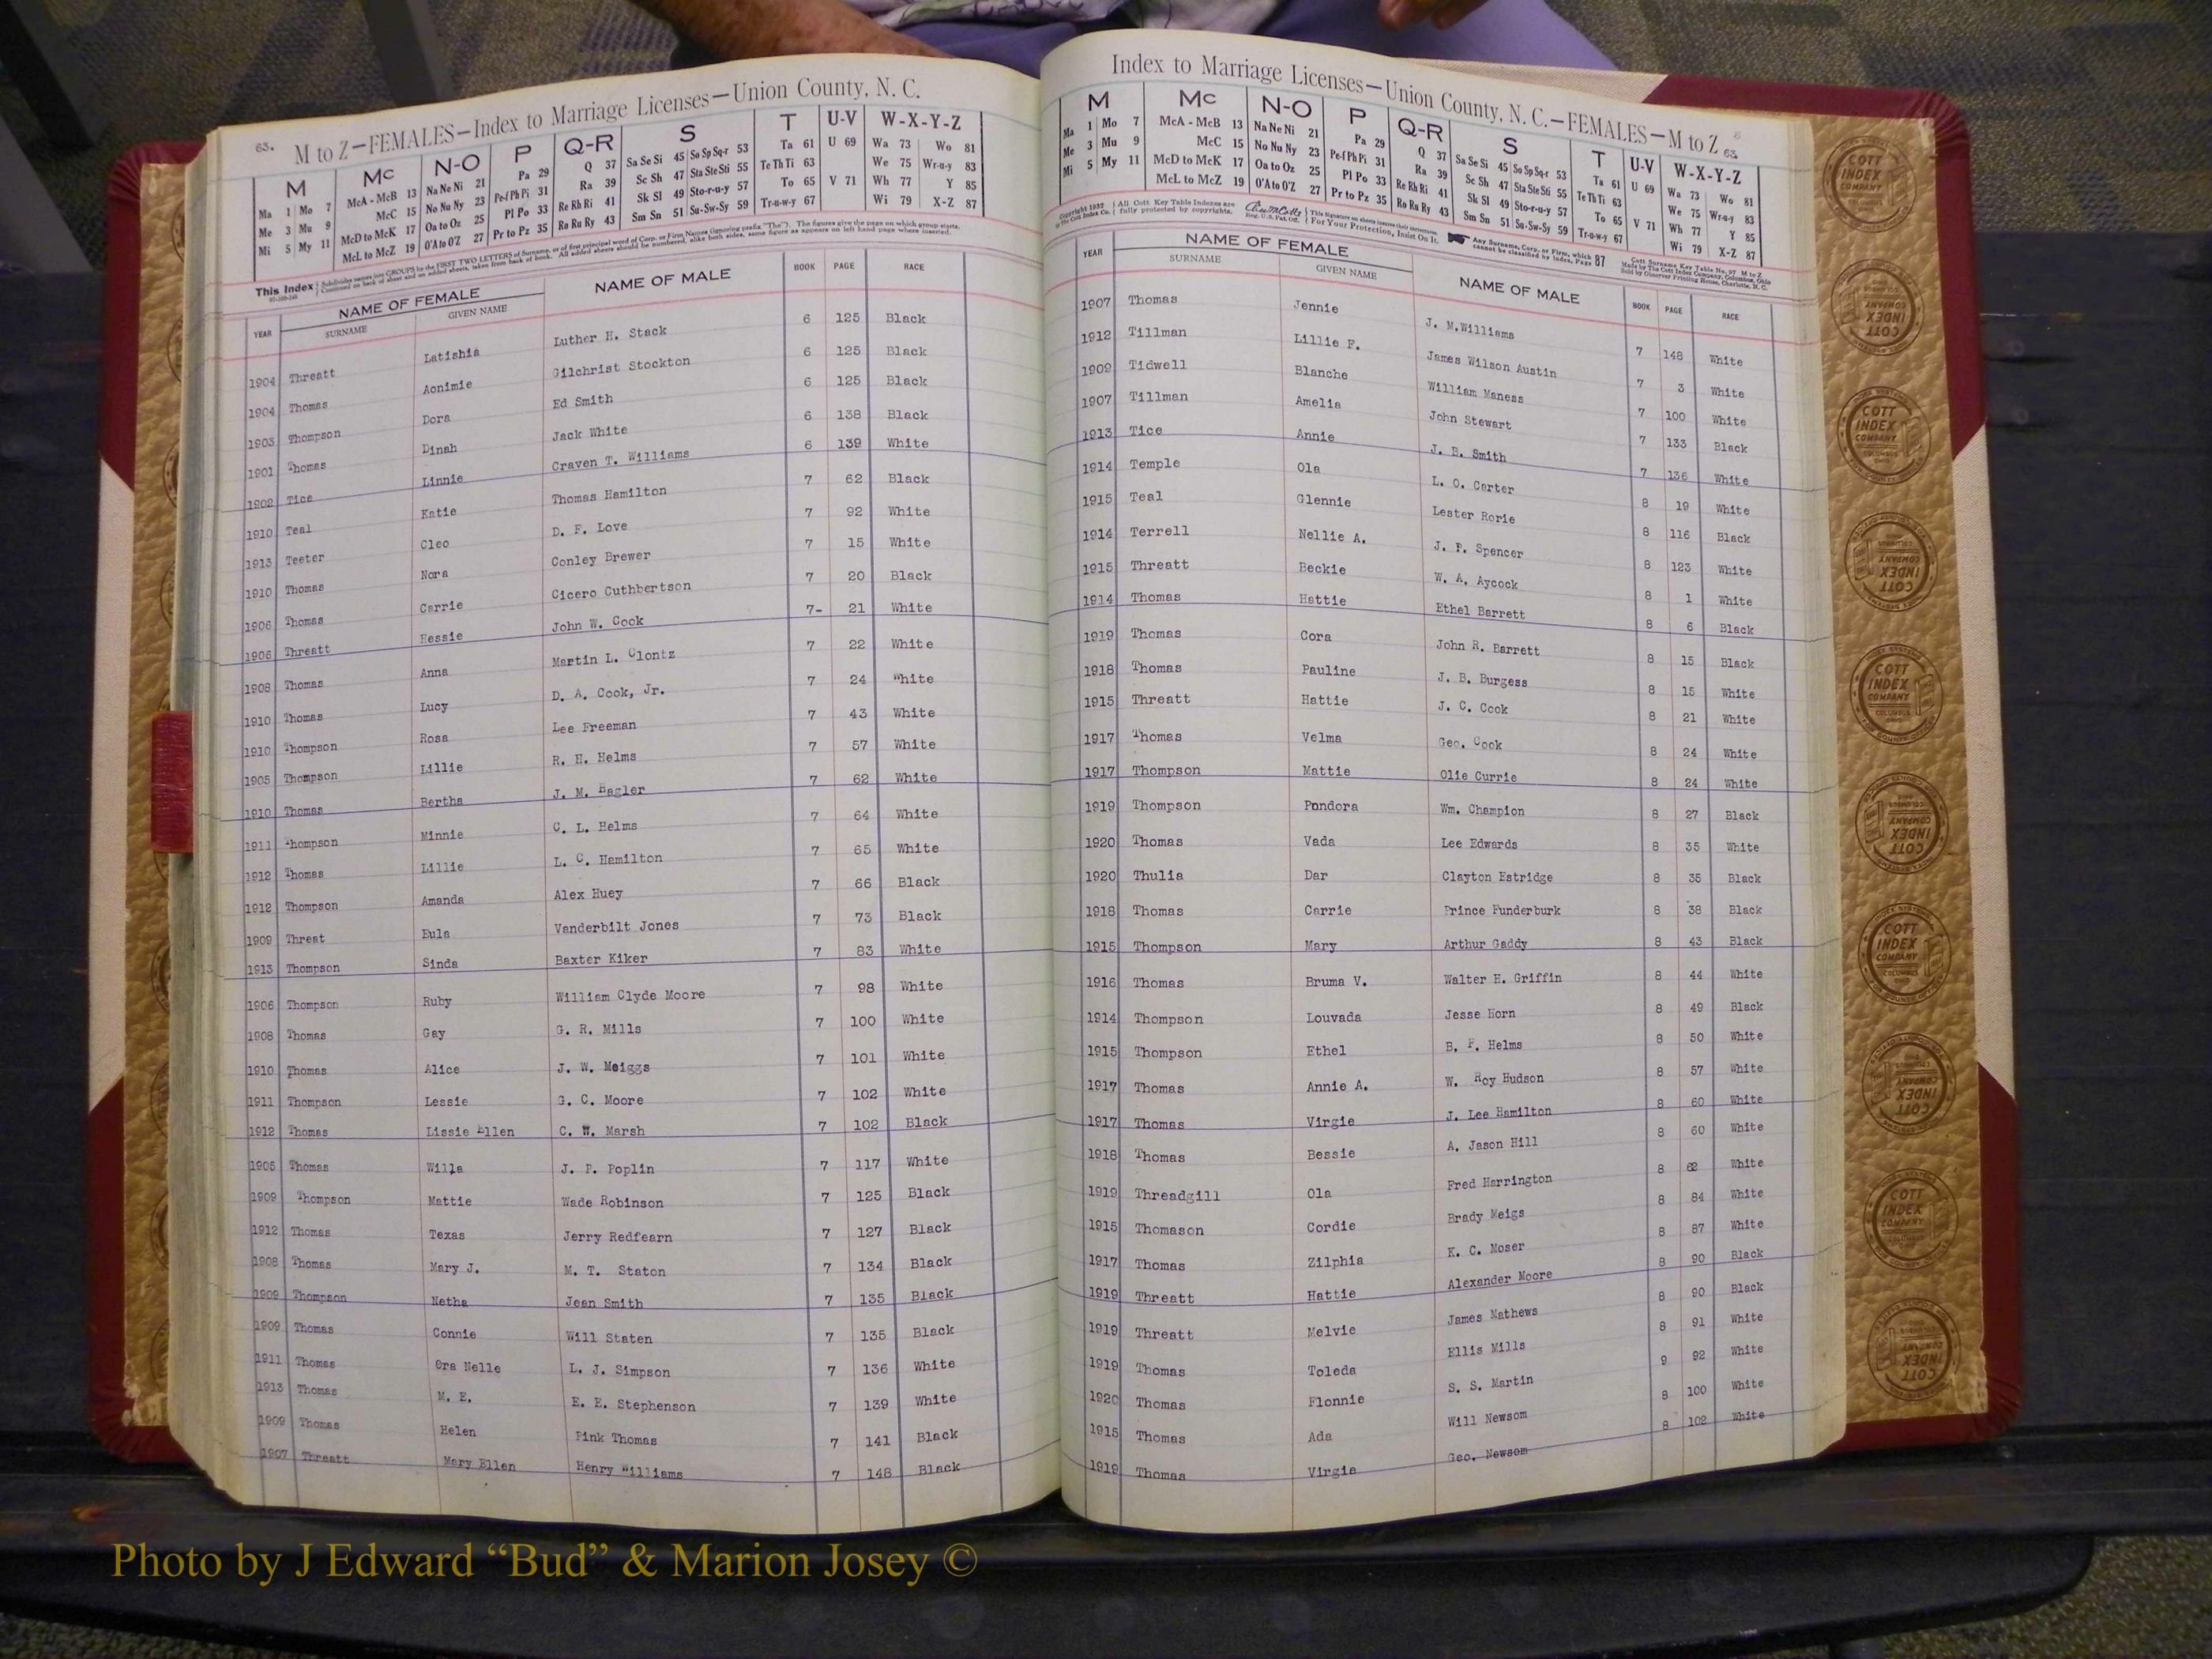 63. M to Z—FEMALES—Index to Marriage Licenses—Union County, N. C.
M Mc N-O P Q-R S T U-V W-X-Y-Z
Ma 1 Mo 7 McA - McB 13 Na Ne Ni 21 Pa 29 Q 37 Sa Se Si 45 So Sp Sq-r 53 Ta 61 U 69 Wa 73 Wo 81
Me 3 Mu 9 McC 15 No Nu Ny 23 Pe-f Ph Pi 31 Ra 39 Sc Sh 47 Sta Ste Sti 55 Te Th Ti 63 We 75 Wr-u-y 83
Mi 5 My 11 McD to McK 17 Oa to Oz 25 Pl Po 33 Re Rh Ri 41 Sk Sl 49 Sto-r-u-y 57 To 65 V 71 Wh 77 Y 85
McL to McZ 19 O'A to O'Z 27 Pr to Pz 35 Ro Ru Ry 43 Sm Sn 51 Su-Sw-Sy 59 Tr-u-w-y 67 Wi 79 X-Z 87
This Index Subdivides names into GROUPS by the FIRST TWO LETTERS of Surname, or of first principal word of Corp. or Firm Names (Ignoring prefix "The"). The figures give the page on which group starts.
Continued on back of sheet and on added sheets, taken from back of book. All added sheets should be numbered, alike both sides, same figure as appears on left hand page where inserted.
YEAR NAME OF FEMALE NAME OF MALE BOOK PAGE RACE
SURNAME GIVEN NAME
1904 Threatt Latishia Luther H. Stack 6 125 Black
1904 Thomas Aonimie Gilchrist Stockton 6 125 Black
1903 Thompson Dora Ed Smith 6 125 Black
1901 Thomas Dinah Jack White 6 138 Black
1902 Tice Linnie Craven T. Williams 6 139 White
1910 Teal Katie Thomas Hamilton 7 62 Black
1913 Teeter Cleo D. F. Love 7 92 White
1910 Thomas Nora Conley Brewer 7 15 White
1906 Thomas Carrie Cicero Cuthbertson 7 20 Black
1906 Threatt Hessie John W. Cook 7- 21 White
1908 Thomas Anna Martin L. Clontz 7 22 White
1910 Thomas Lucy D. A. Cook, Jr. 7 24 White
1910 Thompson Rosa Lee Freeman 7 43 White
1905 Thompson Lillie R. H. Helms 7 57 White
1910 Thomas Bertha J. M. Hagler 7 62 White
1911 Thompson Minnie C. L. Helms 7 64 White
1912 Thomas Lillie L. C. Hamilton 7 65 White
1912 Thompson Amanda Alex Huey 7 66 Black
1909 Threat Eula Vanderbilt Jones 7 73 Black
1913 Thompson Sinda Baxter Kiker 7 83 White
1906 Thompson Ruby William Clyde Moore 7 98 White
1908 Thomas Gay G. R. Mills 7 100 White
1910 Thomas Alice J. W. Meiggs 7 101 White
1911 Thompson Lessie G. C. Moore 7 102 White
1912 Thomas Lissie Ellen C. W. Marsh 7 102 Black
1905 Thomas Willa J. P. Poplin 7 117 White
1909 Thompson Mattie Wade Robinson 7 125 Black
1912 Thomas Texas Jerry Redfearn 7 127 Black
1908 Thomas Mary J. M. T. Staton 7 134 Black
1909 Thompson Netha Jean Smith 7 135 Black
1909 Thomas Connie Will Staten 7 135 Black
1911 Thomas Ora Nelle L. J. Simpson 7 136 White
1913 Thomas M. E. E. E. Stephenson 7 139 White
1909 Thomas Helen Pink Thomas 7 141 Black
1907 Threatt Mary Ellen Henry Williams 7 148 Black
Index to Marriage Licenses—Union County, N. C.—FEMALES—M to Z 63.
M Mc N-O P Q-R S T U-V W-X-Y-Z
Ma 1 Mo 7 McA - McB 13 Na Ne Ni 21 Pa 29 Q 37 Sa Se Si 45 So Sp Sq-r 53 Ta 61 U 69 Wa 73 Wo 81
Me 3 Mu 9 McC 15 No Nu Ny 23 Pe-f Ph Pi 31 Ra 39 Sc Sh 47 Sta Ste Sti 55 Te Th Ti 63 We 75 Wr-u-y 83
Mi 5 My 11 McD to McK 17 Oa to Oz 25 Pl Po 33 Re Rh Ri 41 Sk Sl 49 Sto-r-u-y 57 To 65 V 71 Wh 77 Y 85
McL to McZ 19 O'A to O'Z 27 Pr to Pz 35 Ro Ru Ry 43 Sm Sn 51 Su-Sw-Sy 59 Tr-u-w-y 67 Wi 79 X-Z 87
Copyright 1932 All Cott Key Table Indexes are For Your Protection, Insist On It. Any Surname, Corp. or Firm, which
The Cott Index Co. fully protected by copyrights. cannot be classified by Index, Page 87
YEAR NAME OF FEMALE NAME OF MALE BOOK PAGE RACE
SURNAME GIVEN NAME
1907 Thomas Jennie J. M.Williams 7 148 White
1912 Tillman Lillie F. James Wilson Austin 7 3 White
1909 Tidwell Blanche William Maness 7 100 White
1907 Tillman Amelia John Stewart 7 133 Black
1913 Tice Annie J. B. Smith 7 136 White
1914 Temple Ola L. O. Carter 8 19 White
1915 Teal Glennie Lester Rorie 8 116 Black
1914 Terrell Nellie A. J. P. Spencer 8 123 White
1915 Threatt Beckie W. A. Aycock 8 1 White
1914 Thomas Hattie Ethel Barrett 8 6 Black
1919 Thomas Cora John R. Barrett 8 15 Black
1918 Thomas Pauline J. B. Burgess 8 15 White
1915 Threatt Hattie J. C. Cook 8 21 White
1917 Thomas Velma Geo. Cook 8 24 White
1917 Thompson Mattie Olie Currie 8 24 White
1919 Thompson Pandora Wm. Champion 8 27 Black
1920 Thomas Vada Lee Edwards 8 35 White
1920 Thulia Dar Clayton Estridge 8 35 Black
1918 Thomas Carrie Prince Funderburk 8 38 Black
1915 Thompson Mary Arthur Gaddy 8 43 Black
1916 Thomas Bruma V. Walter H. Griffin 8 44 White
1914 Thompson Louvada Jesse Horn 8 49 Black
1915 Thompson Ethel B. F. Helms 8 50 White
1917 Thomas Annie A. W. Roy Hudson 8 57 White
1917 Thomas Virgie J. Lee Hamilton 8 60 White
1918 Thomas Bessie A. Jason Hill 8 60 White
1919 Threadgill Ola Fred Harrington 8 62 White
1915 Thomason Cordie Brady Meigs 8 84 White
1917 Thomas Zilphia K. C. Moser 8 87 White
1919 Threatt Hattie Alexander Moore 8 90 Black
1919 Threatt Melvie James Mathews 8 90 Black
1919 Thomas Toleda Ellis Mills 8 91 White
1920 Thomas Flonnie S. S. Martin 9 92 White
1915 Thomas Ada Will Newsom 8 100 White
1919 Thomas Virgie Geo. Newsom 8 102 White
COTT INDEX COMPANY
Photo by J Edward “Bud” & Marion Josey ©